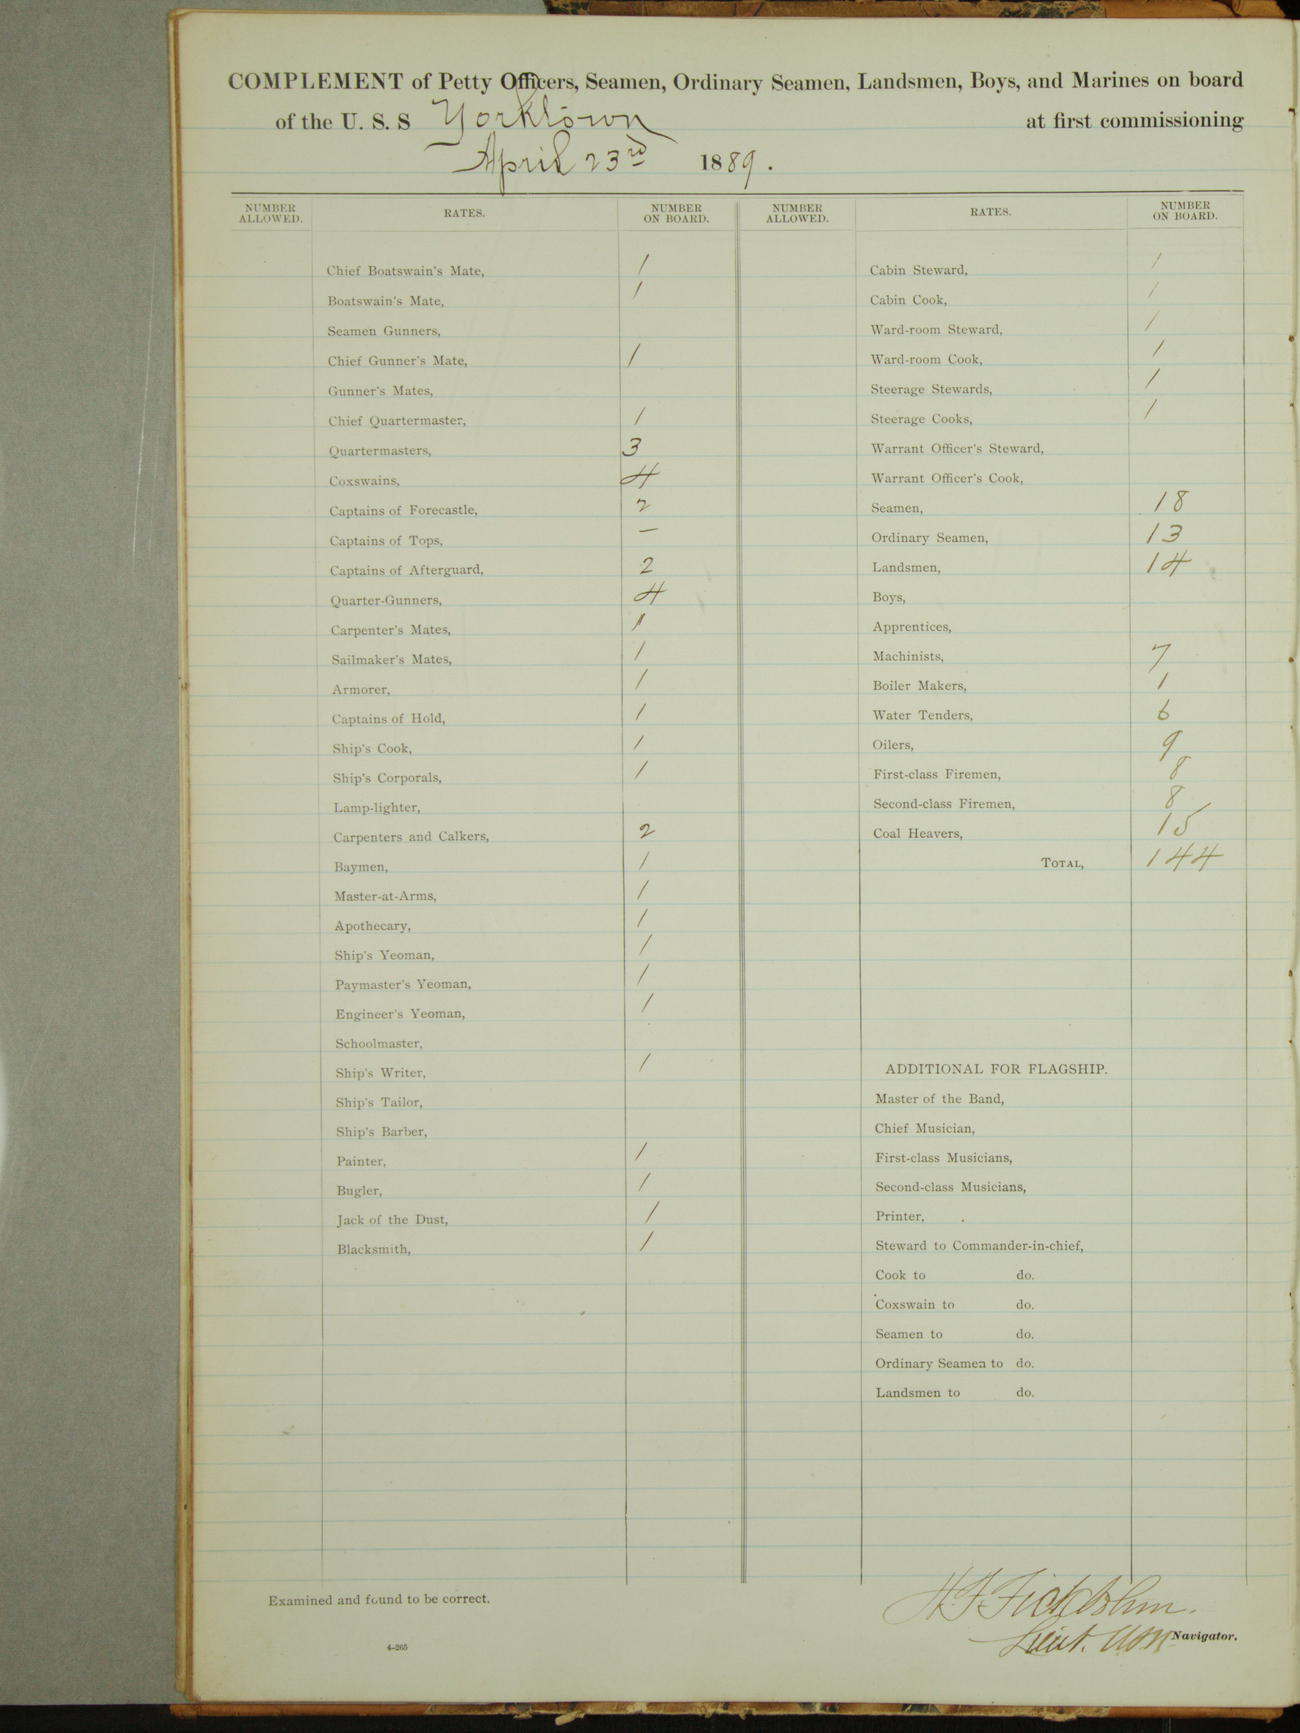 COMPLEMENT of Petty Officers, Seamen, Ordinary Seamen, Landsmen, Boys, and Marines on board
of the U. S. S Yorktown at first commissioning
April 23rd 1889.
NUMBER ALLOWED. RATES. NUMBER ON BOARD. NUMBER ALLOWED. RATES. NUMBER ON BOARD.
Chief Boatswain's Mate, 1
Boatswain's Mate, 1
Seamen Gunners,
Chief Gunner's Mate, 1
Gunner's Mates,
Chief Quartermaster, 1
Quartermasters, 3
Coxswains, 4
Captains of Forecastle, 2
Captains of Tops, —
Captains of Afterguard, 2
Quarter-Gunners, 4
Carpenter's Mates, 1
Sailmaker's Mates, 1
Armorer, 1
Captains of Hold, 1
Ship's Cook, 1
Ship's Corporals, 1
Lamp-lighter,
Carpenters and Calkers, 2
Baymen, 1
Master-at-Arms, 1
Apothecary, 1
Ship's Yeoman, 1
Paymaster's Yeoman, 1
Engineer's Yeoman, 1
Schoolmaster,
Ship's Writer, 1
Ship's Tailor,
Ship's Barber,
Painter, 1
Bugler, 1
Jack of the Dust, 1
Blacksmith, 1
Cabin Steward, 1
Cabin Cook, 1
Ward-room Steward, 1
Ward-room Cook, 1
Steerage Stewards, 1
Steerage Cooks, 1
Warrant Officer's Steward,
Warrant Officer's Cook,
Seamen, 18
Ordinary Seamen, 13
Landsmen, 14
Boys,
Apprentices,
Machinists, 7
Boiler Makers, 1
Water Tenders, 6
Oilers, 9
First-class Firemen, 8
Second-class Firemen, 8
Coal Heavers, 15
TOTAL, 144
ADDITIONAL FOR FLAGSHIP.
Master of the Band,
Chief Musician,
First-class Musicians,
Second-class Musicians,
Printer,
Steward to Commander-in-chief,
Cook to do.
Coxswain to do.
Seamen to do.
Ordinary Seamen to do.
Landsmen to do.
Examined and found to be correct.
Lieut. USN Navigator.
4-265